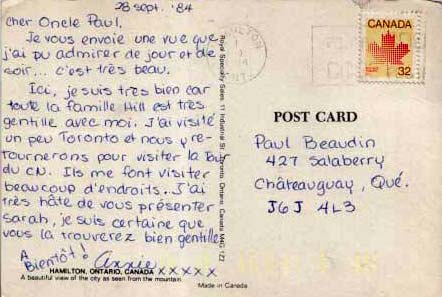 28 sept. '84
Cher Oncle Paul,
Je vous envoie une vue que
j'ai pu admirer de jour et de
soir... c'est très beau.
Ici, je suis très bien car
toute la famille Hill est très
gentille avec moi. J'ai visité
un peu Toronto et nous y re-
tournerons pour visiter la Tour
du CN. Ils me font visiter
beaucoup d'endroits. J'ai
très hâte de vous présenter
Sarah, je suis certaine que
vous la trouverez bien gentille.
À Bientôt! Annie
xxxxx
HAMILTON, ONTARIO, CANADA
A beautiful view of the city as seen from the mountain.
Royal Specialty Sales, 11 Industrial St., Toronto, Ontario, Canada M4G 1Z2
Made in Canada
HAMILTON
CANADA
32
POST CARD
Paul Beaudin
427 Salaberry
Châteauguay, Qué.
J6J 4L3